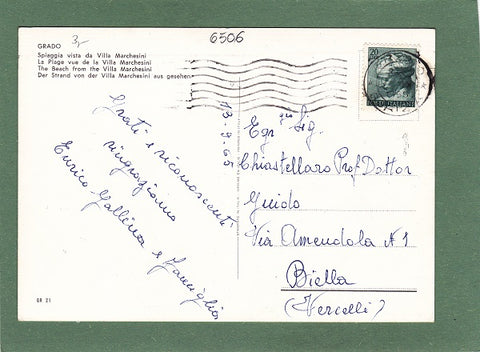 GRADO
3,-
6506
Spiaggia vista da Villa Marchesini
La Plage vue de la Villa Marchesini
The Beach from the Villa Marchesini
Der Strand von der Villa Marchesini aus gesehen
POSTE ITALIANE
13-9-65
Grati e riconoscenti
ringraziamo
Enrico Gallina e famiglia
Egr. Sig.
Chiastellaro Prof. Dottor
Guido
Via Amendola N 1
Biella
(Vercelli)
GR 21